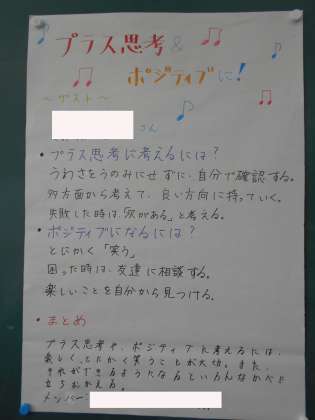 プラス思考&
ポジティブに!
〜ゲスト〜
さん
・プラス思考に考えるには?
うわさをうのみにせずに、自分で確認する。
多方面から考えて、良い方向に持っていく。
失敗した時は「次がある」と考える。
・ポジティブになるには?
とにかく「笑う」
困った時は、友達に相談する。
楽しいことを自分から見つける。
・まとめ
プラス思考や、ポジティブに考えるには、
楽しく、とにかく笑うことが大切。また、
それができるようになるといろんなかべに
立ちむかえる。
メンバー